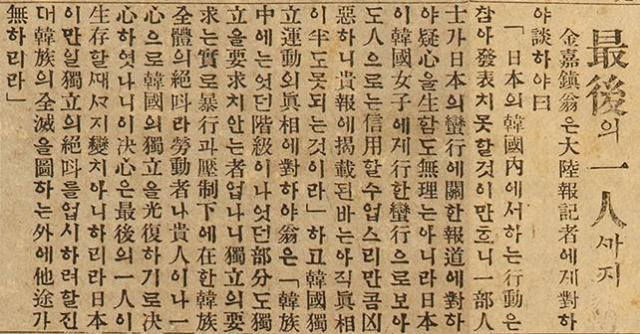 最後의 一人ᄭᅡ지
金嘉鎭翁은大陸報記者에게對하
야談하야曰
「日本의韓國內에서하는行動은
참아發表치못할것이만흐니一部人
士가日本의蠻行에關한報道에對하
야疑心을生함도無理는아니라日本
이韓國女子에게行한蠻行으로보아
도人으로는信用할수업스리만콤凶
惡하니貴報에揭載된바는아직眞相
이半도못되는것이라」하고韓國獨
立運動의眞相에對하야翁은「韓族
中에는엇던階級이나엇던部分도獨
立을要求치안는者업나니獨立의要
求는實로暴行과壓制下에在한韓族
全體의絕叫라勞動者나貴人이나一
心으로韓國의獨立을光復하기로決
心하엿나니이決心은最後의一人이
生存할ᄯᅢᄭᅡ지變치아니하리라日本
이만일獨立의絕叫를업시하려할진
대韓族의全滅을圖하는外에他途가
無하리라」